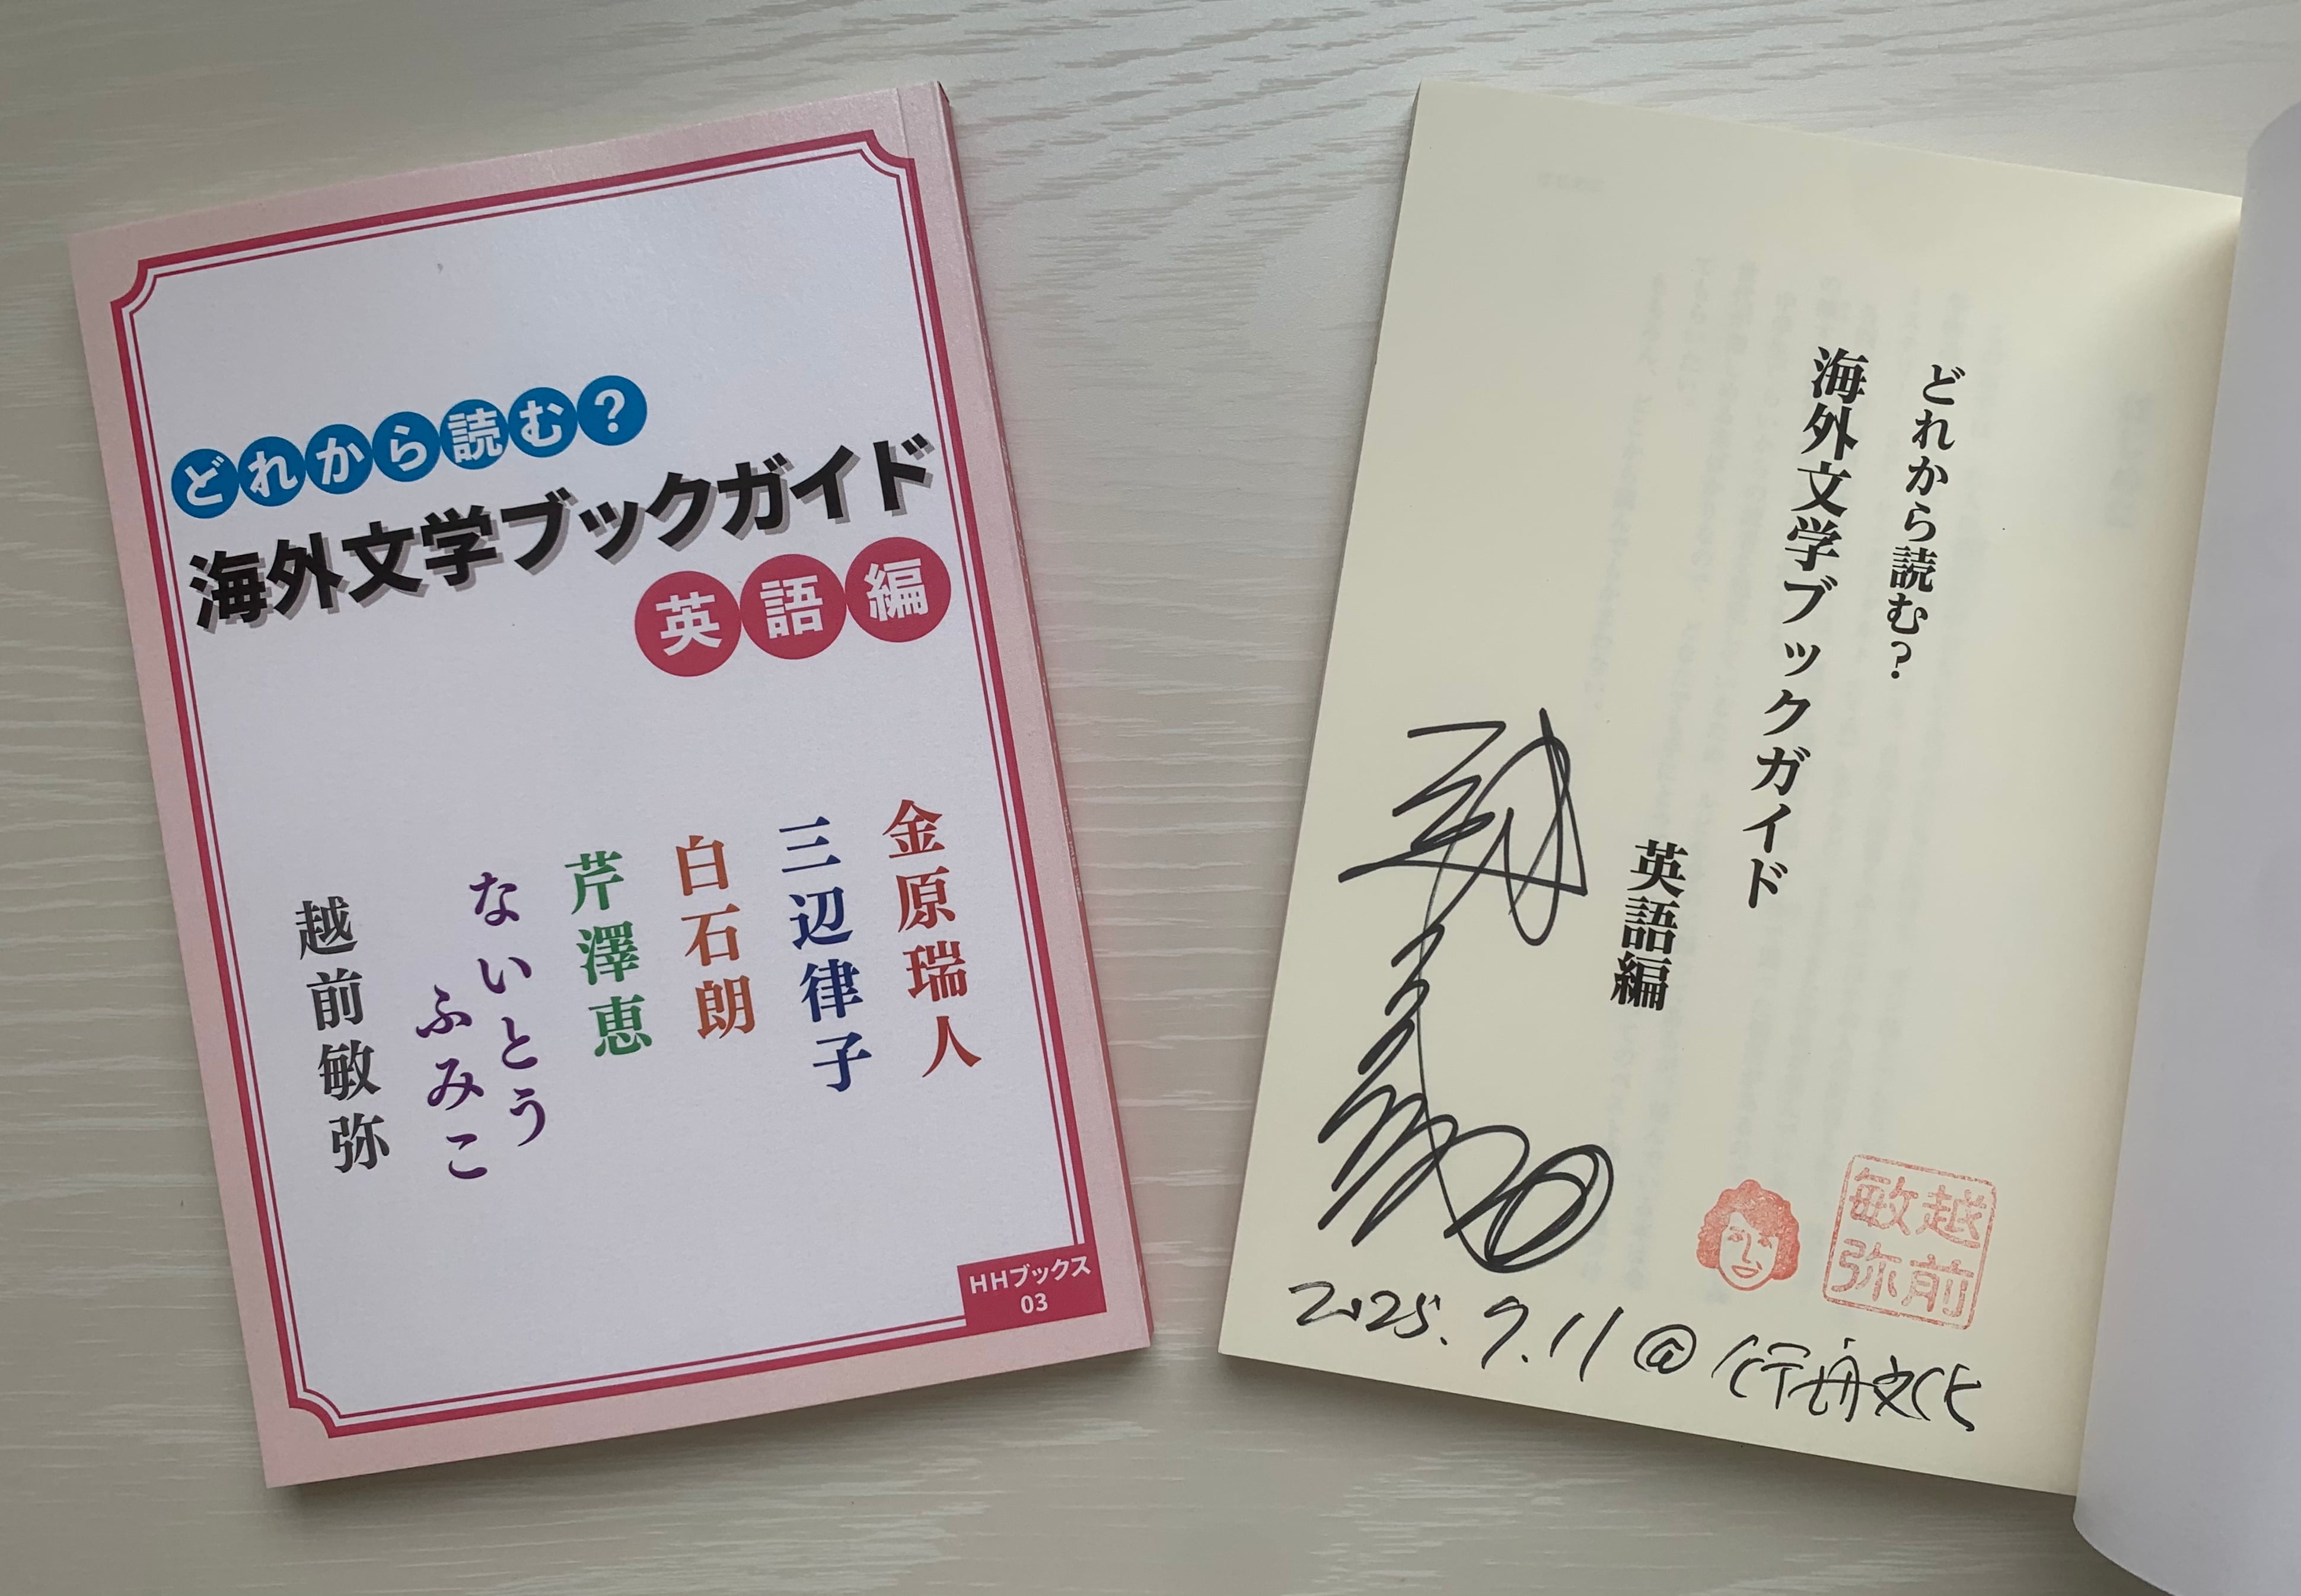 どれから読む?
海外文学ブックガイド
英語編
金原瑞人
三辺律子
白石朗
芹澤恵
ないとう
ふみこ
越前敏弥
HHブックス
03
どれから読む?
海外文学ブックガイド
英語編
越前
敏弥
2025.9.11 @ 行舟文化